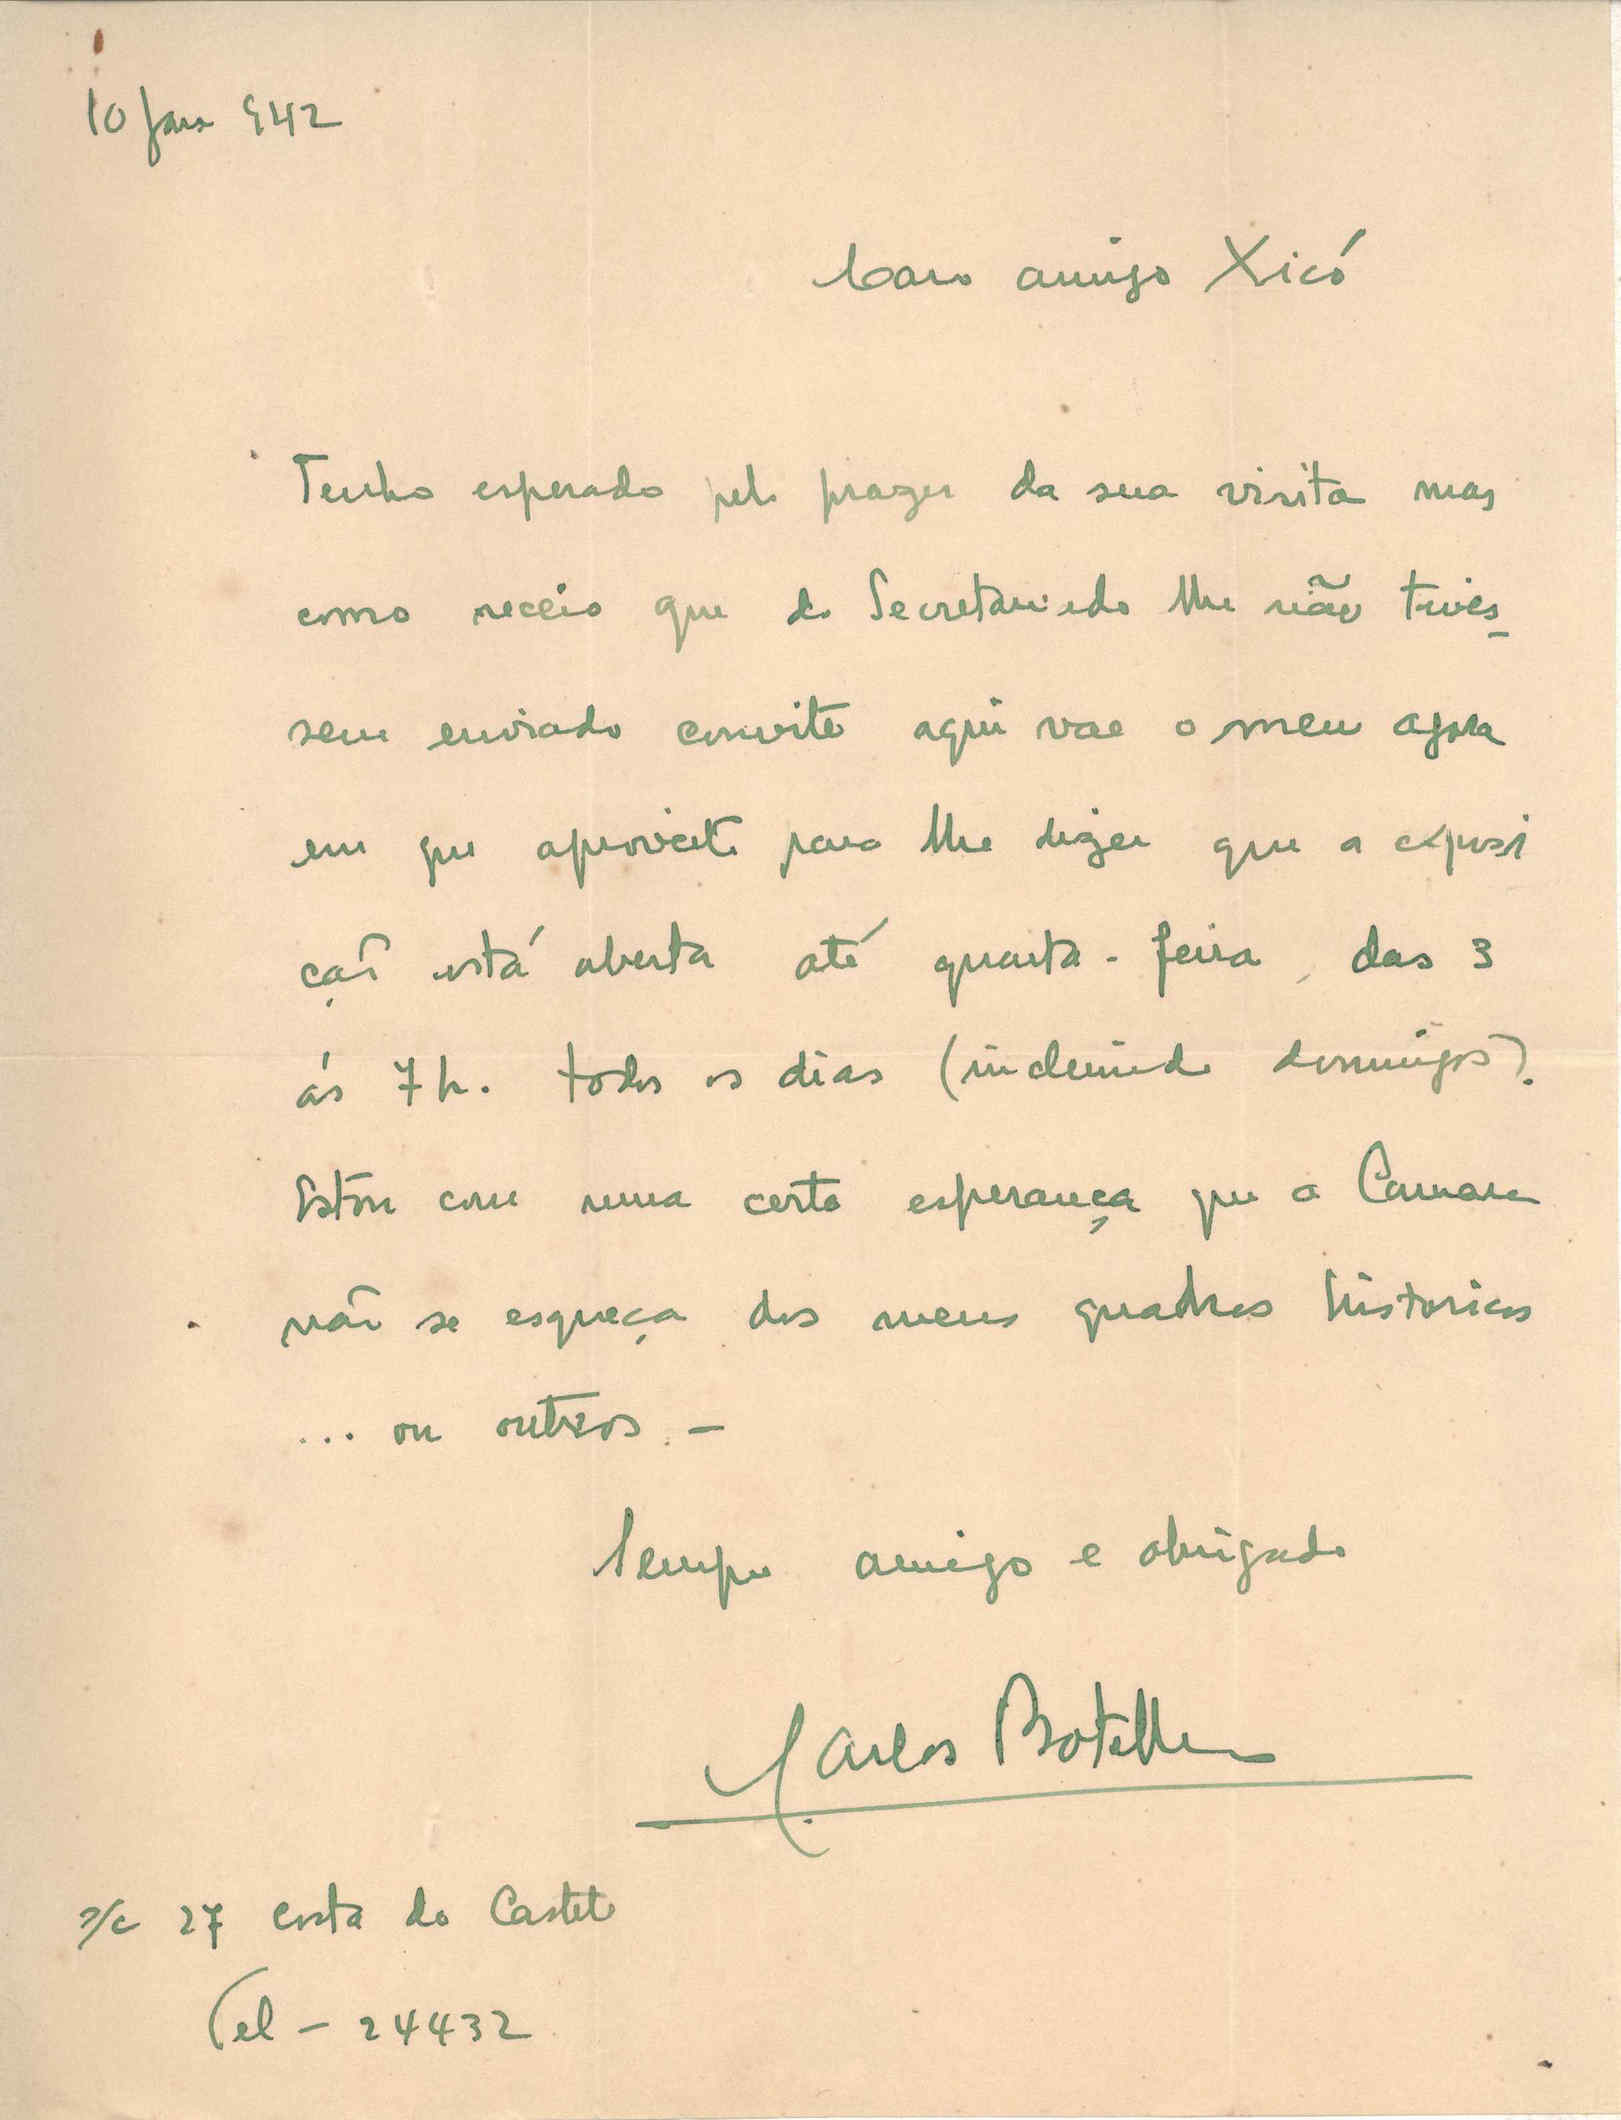 10 Jan 942
Caro amigo Xicó
Tenho esperado pelo prazer da sua visita mas
como receio que do Secretariado lhe não tives_
sem enviado convite aqui vae o meu agora
em que aproveito para lhe dizer que a exposi
ção está aberta até quarta-feira, das 3
ás 7 h. todos os dias (incluindo domingos).
Estou com uma certa esperança que a Camara
não se esqueça dos meus quadros historicos
... ou outros. –
Sempre amigo e obrigado
Carlos Botelho
s/c 27 Costa do Castelo
Tel – 24432